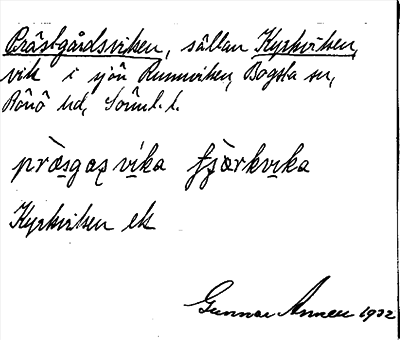 Prästgårdsviken, sällan Kyrkviken,
vik i sjön Runnviken, Bogsta sn,
Rönö hd, Sörml. l.
prä̀sgaʂ vika fʃä̀rkvika
Kyrkviken ek
Gunnar Annell 1932